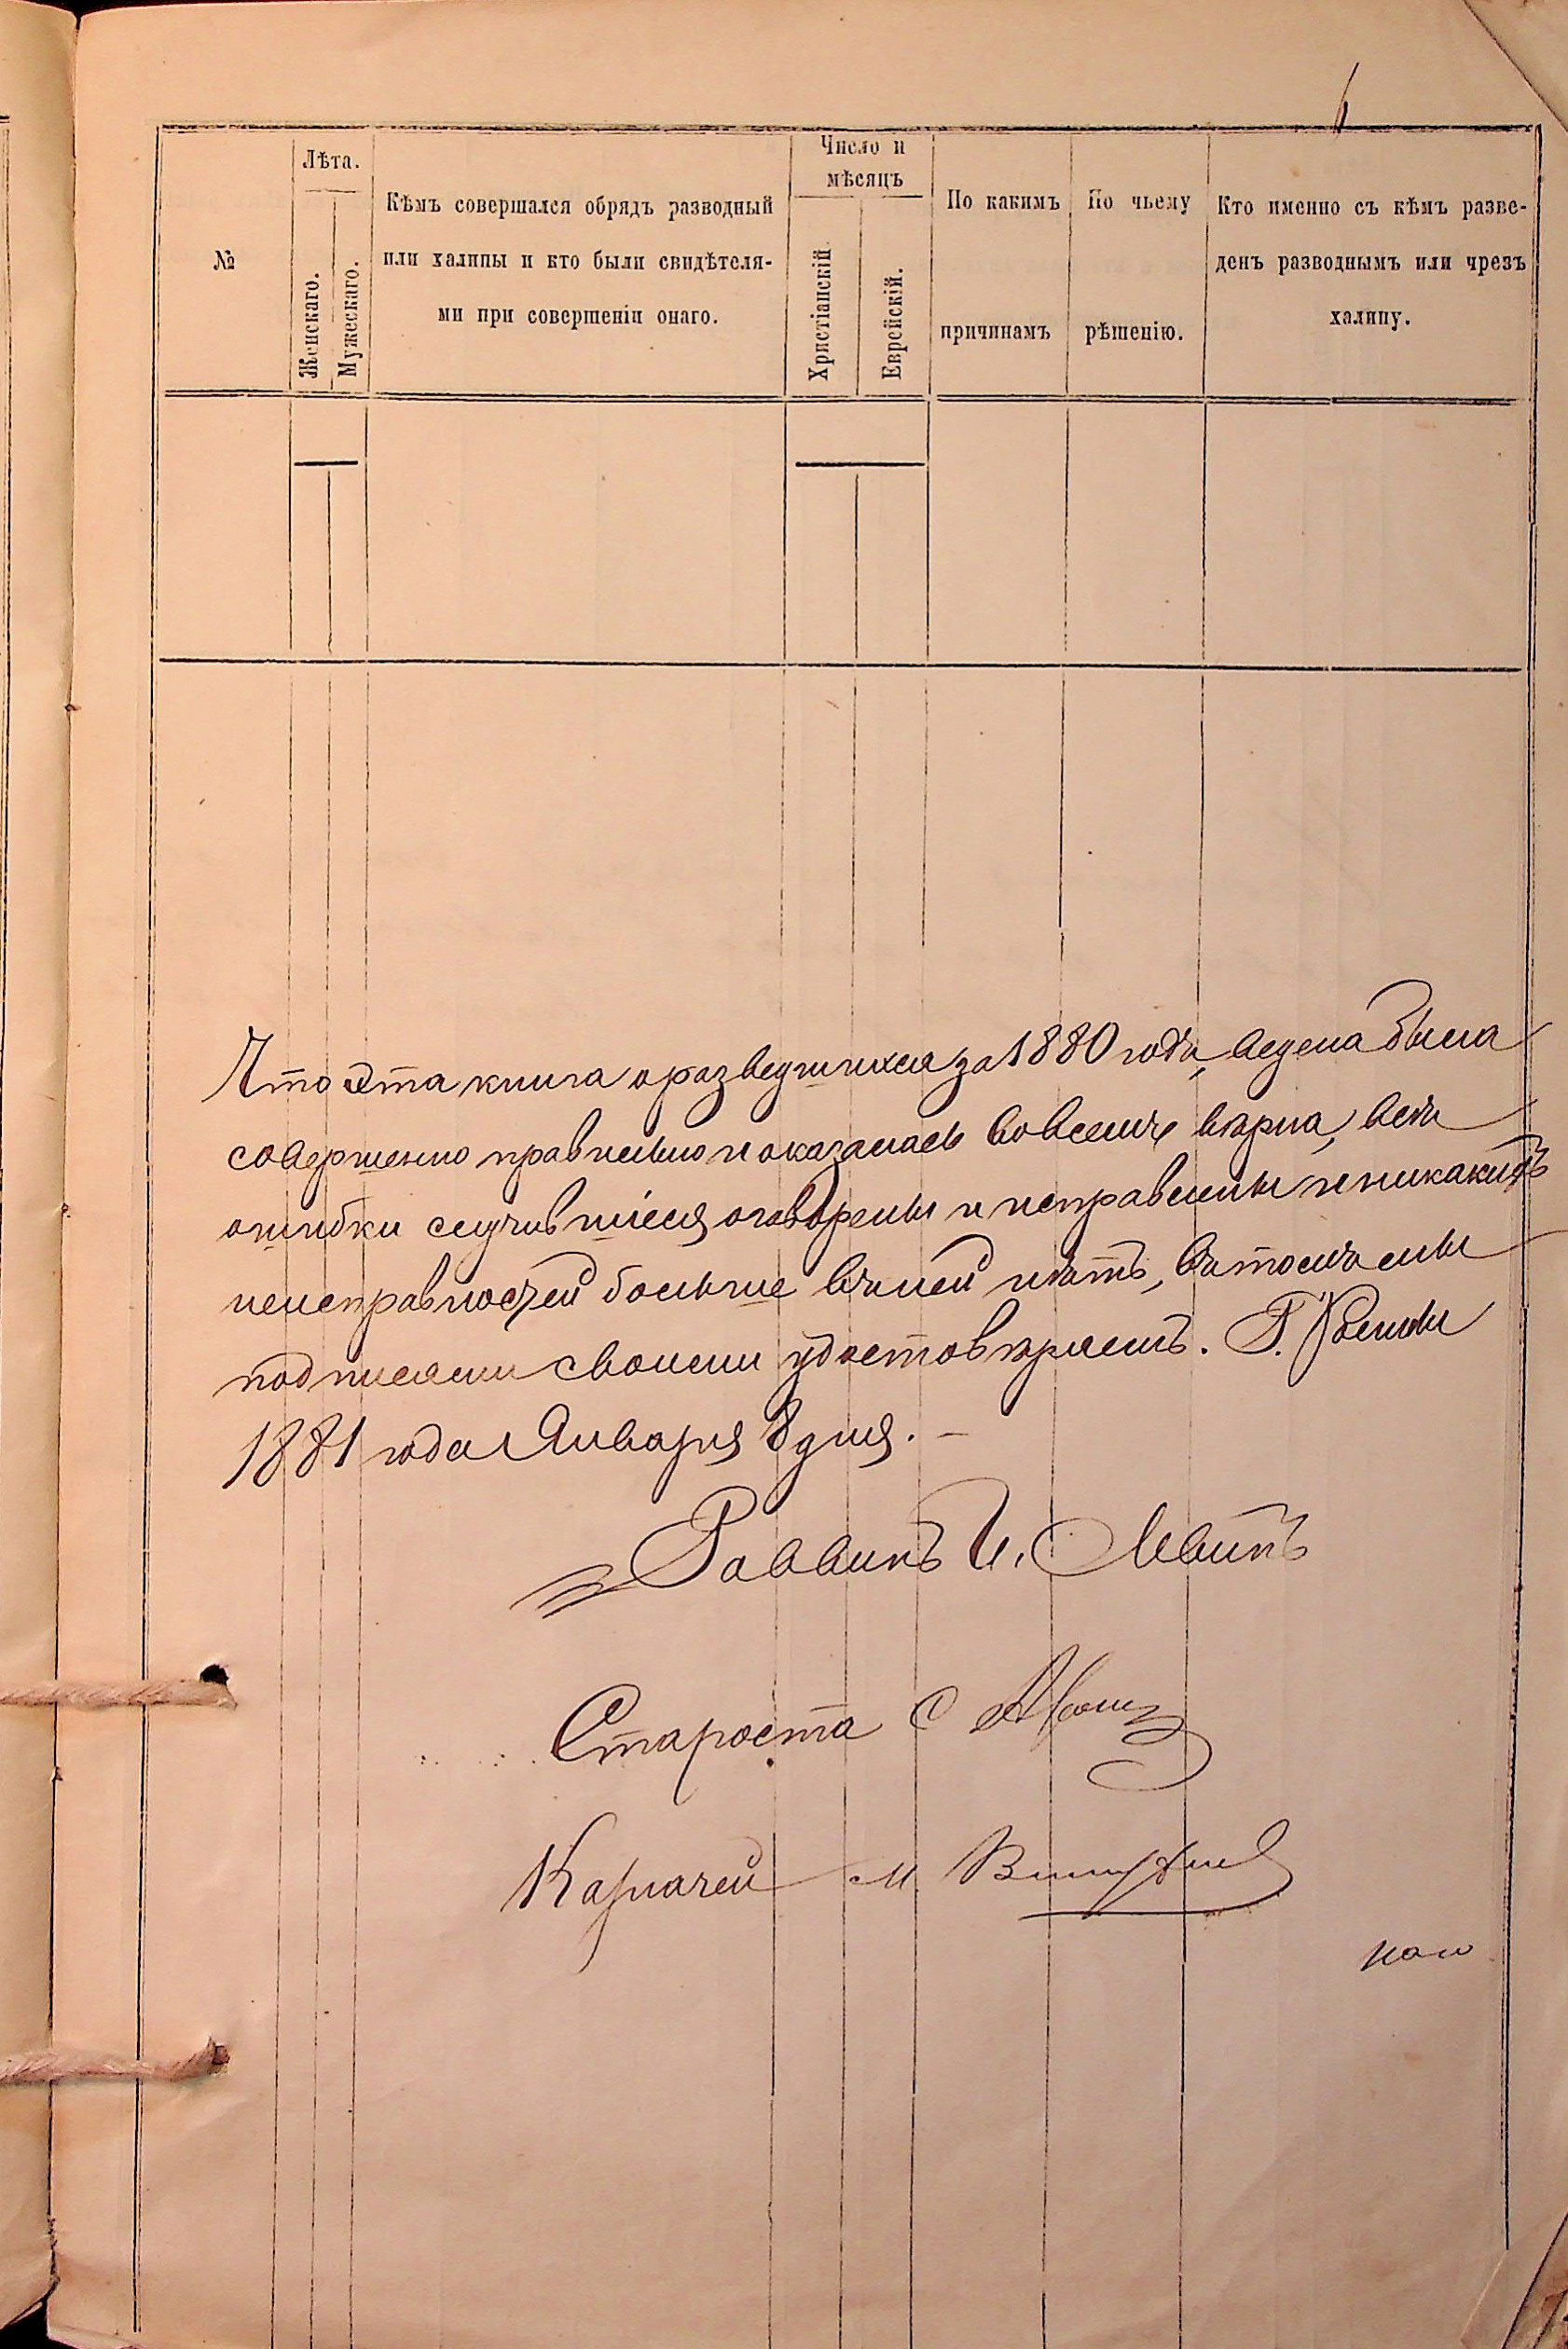 №
Лѣта.
Женскаго.
Мужескаго.
Кѣмъ совершался обрядъ разводный
или халицы и кто были свидѣтеля-
ми при совершеніи онаго.
Число и
мѣсяцъ
Христіанскій.
Еврейскій.
По какимъ
причинамъ
По чьему
рѣшенію.
Кто именно съ кѣмъ разве-
денъ разводнымъ или чрезъ
халицу.
Что эта книга о разведшихся за 1880 годъ, ведена была
совершенно правильно и оказалась во всемъ вѣрна, всѣ
ошибки случившіеся оговорены и исправлены и никакихъ
неисправностей больше въ ней нѣтъ, въ томъ мы
подписями своими удостовѣряемъ. Г. Ромны
1881 года Января 8 дня. –
Раввинъ И. Левинъ
Староста С
Казначей М.